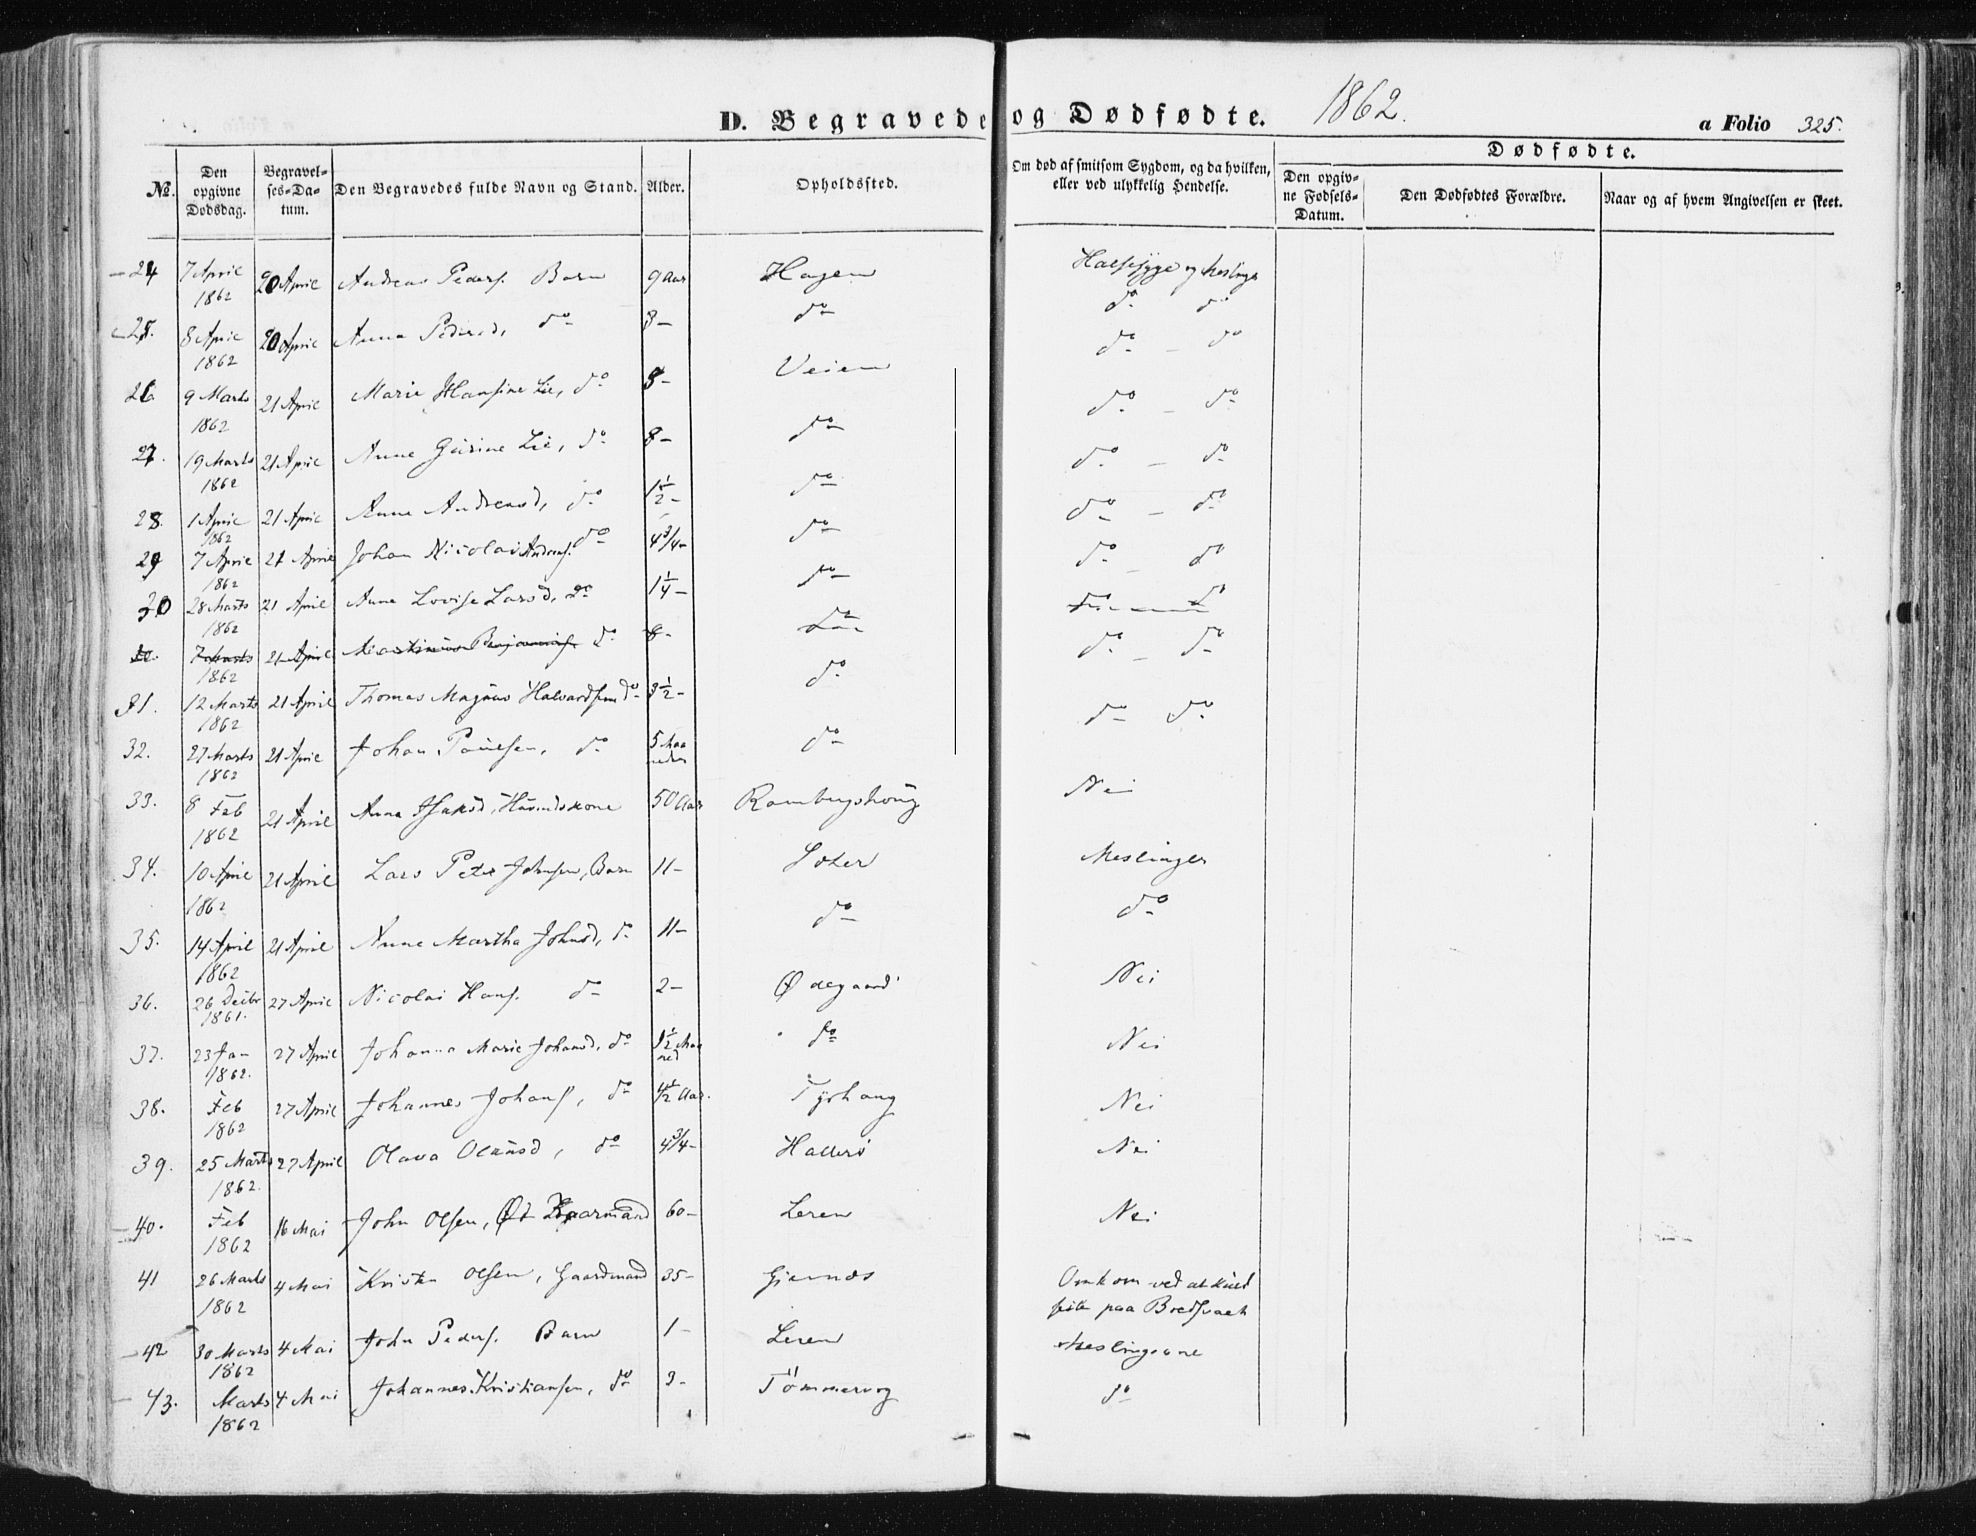 D. Begravede og Dødfødte. 1862. a Folio 325.
No. Den opgivne Dødsdag. Begravelses-Datum. Den Begravedes fulde Navn og Stand. Alder. Opholdssted. Om død af smitsom Sygdom, og da hvilken, eller ved ulykkelig Hendelse. Dødfødte. Den opgivne Fødsels-Datum. Den Dødfødtes Forældre. Naar og af hvem Angivelsen er skeet.
24 7 April 1862 20 April Andreas Peders. Barn 9 Aar Hagen Halssyge og Meslinger
25. 8 April 1862 20 April Anna Pedersd, do 8 - do do do
26 9 Marts 1862 21 April Marie Hansine Lie, do 8 - Veien do - do
27. 19 Marts 1862 21 April Anne Gurine Lie, do 8 - do do - do
28. 1 April 1862 21 April Anne Andreasd, do 1½ - do do - do
29 7 April 1862 21 April Johan Nicolai Andreas. do 4¾ - do do - do
30 28 Marts 1862 21 April Anne Lovise Larsd, do 1¼ - do do - do
7 Marts 1862 21 April Martinus Benjamins. do 8 - do
31. 12 Marts 1862 21 April Thomas Magnus Halvardsen do 3½ - do do - do
32. 27 Marts 1862 21 April Johan Paulsen, do 5 Maaneder do do do
33. 8 Feb 1862 21 April Anna Isaksd, Huusmandskone 50 Aar Rambergshoug Nei
34. 10 April 1862 21 April Lars Peter Johnsen, Barn 11 - Soter Meslinger
35. 14 April 1862 21 April Anne Martha Johnsd, do 11 - do do
36. 26 Decbr 1861. 27 April Nicolai Hans. do 2 - Ødegaard Nei
37. 23 Jan 1862. 27 April Johanna Marie Johansd, do ½ Maaned do Nei
38. Feb 1862 27 April Johannes Johans, do 4½ Aar. Tyrhaug Nei
39. 25 Marts 1862. 27 April Olava Olausd, do 4¾ - Hallerø Nei
40. Feb 1862 16 Mai John Olsen, Kaarmand 60 - Leren Nei
41 26 Marts 1862 4 Mai Kristen Olsen, Gaardmand 35 - Gjernes Omkom ved at kuldseile paa Bredsvaet
42 30 Marts 1862 4 Mai John Peders. Barn 1 - Leren Meslingerne
43. Marts 1862 4 Mai Johannes Kristiansen, do 3 - Tömmervog do